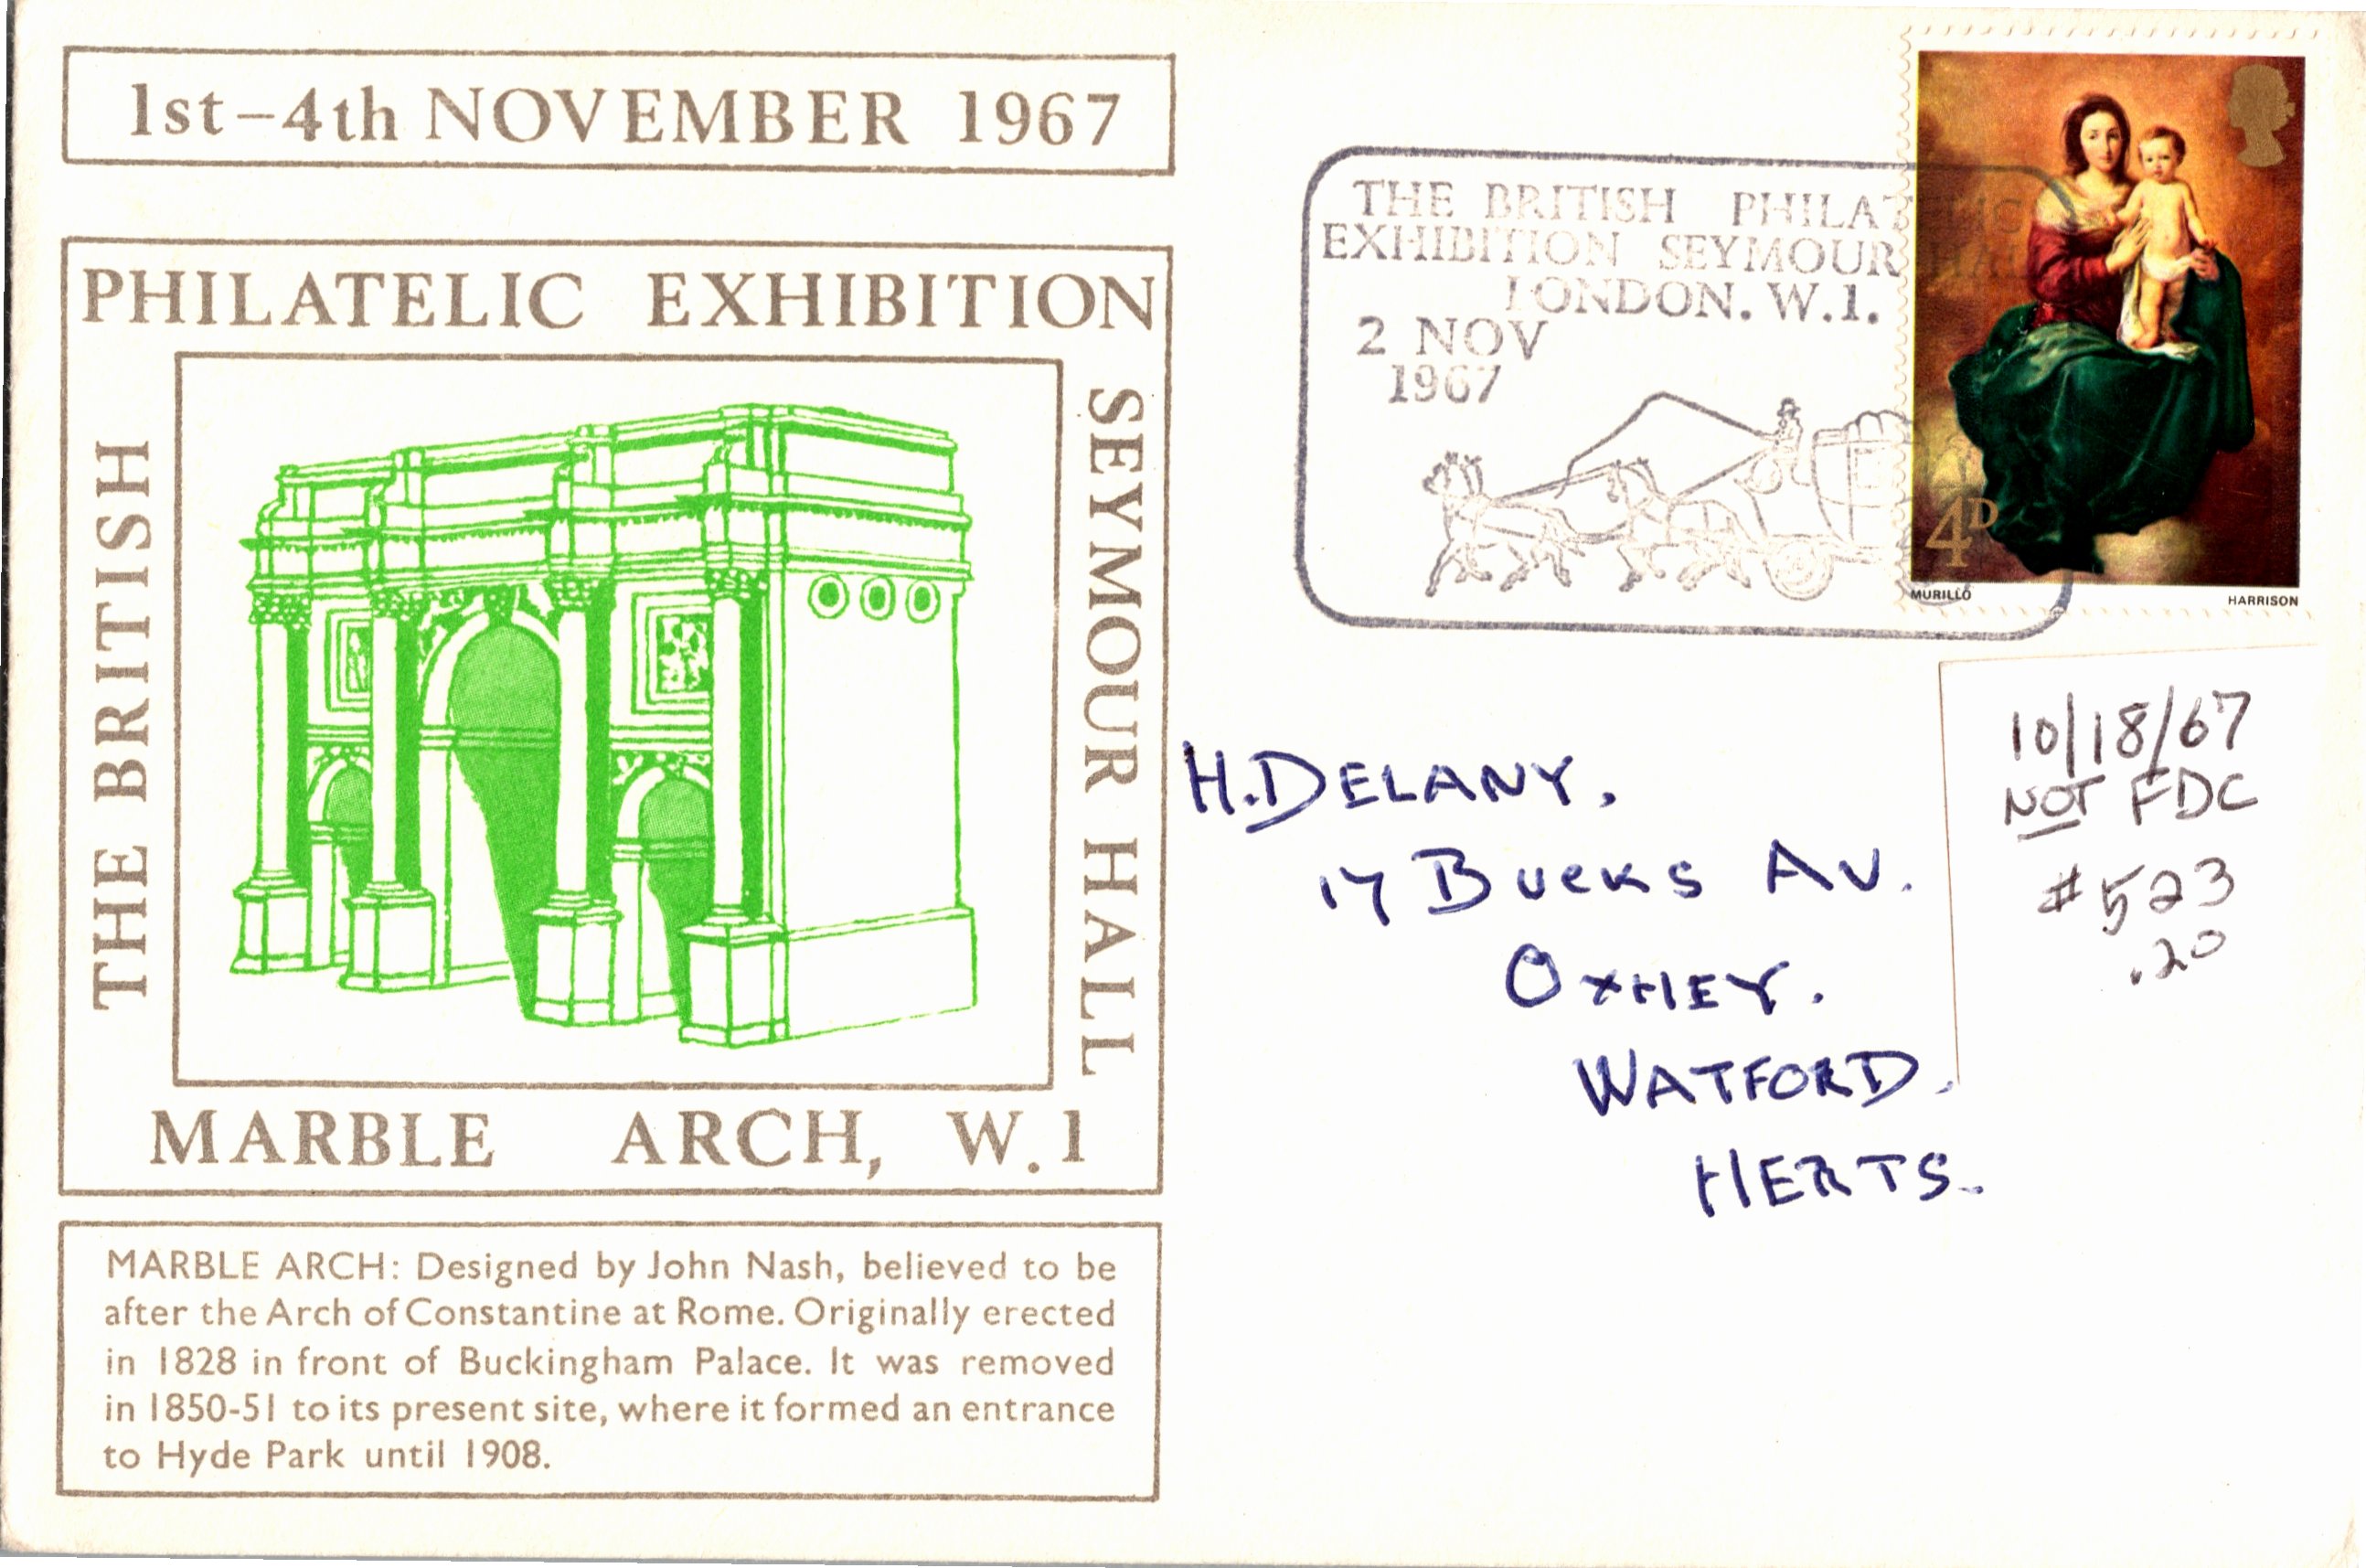 1st–4th NOVEMBER 1967
PHILATELIC EXHIBITION
THE BRITISH
SEYMOUR HALL
MARBLE ARCH, W.1
MARBLE ARCH: Designed by John Nash, believed to be
after the Arch of Constantine at Rome. Originally erected
in 1828 in front of Buckingham Palace. It was removed
in 1850-51 to its present site, where it formed an entrance
to Hyde Park until 1908.
THE BRITISH PHILATELIC
EXHIBITION SEYMOUR HALL
LONDON. W.1.
2 NOV
1967
4D
MURILLO
HARRISON
H. DELANY.
17 BUCKS AV.
OXHEY.
WATFORD.
HERTS.
10/18/67
NOT FDC
#523
.20